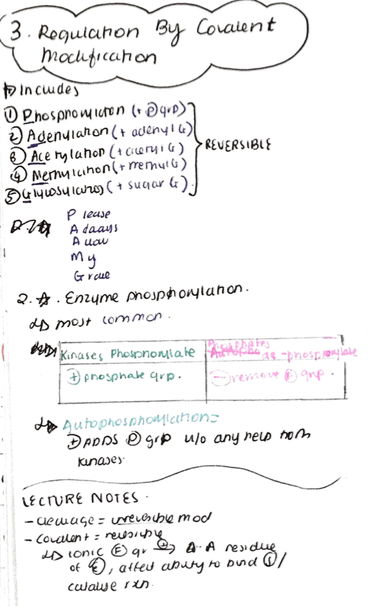 3. Regulation By Covalent
Modification
Includes
① Phosphorylation (+ Ⓟ grp)
② Adenylation (+ adenyl G)
③ Acetylation (+ acetyl G)
④ Methylation (+ methyl G)
⑤ Glycosylation (+ sugar G).
REVERSIBLE
Please
Always
My
Grade
2. Enzyme phosphorylation.
most common.
Kinases Phosphorylate
+ phosphate grp.
- remove Ⓟ grp.
Autophosphorylation =
+ ADDS Ⓟ grp w/o any help from
kinases.
LECTURE NOTES.
- cleavage = irreversible mod
- covalent = reversible
ionic Ⓟ gr → A.A residue
of Ⓔ, affect ability to bind Ⓢ/
catalyse rxn.